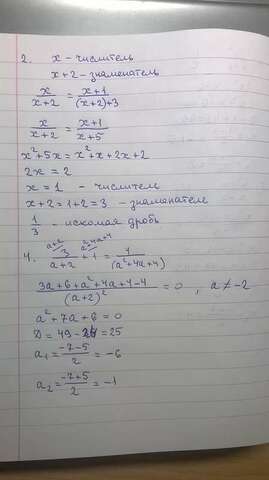 2. x - числитель
x+2 - знаменатель
x/(x+2) = (x+1)/((x+2)+3)
x/(x+2) = (x+1)/(x+5)
x²+5x = x²+x+2x+2
2x = 2
x = 1 - числитель
x+2 = 1+2 = 3 - знаменатель
1/3 - искомая дробь
4. a+2/ 3/(a+2) + a²+4a+4/ 1 = 4/(a²+4a+4)
(3a+6+a²+4a+4-4)/(a+2)² = 0 , a ≠ -2
a²+7a+6 = 0
D = 49-24 = 25
a₁ = (-7-5)/2 = -6
a₂ = (-7+5)/2 = -1